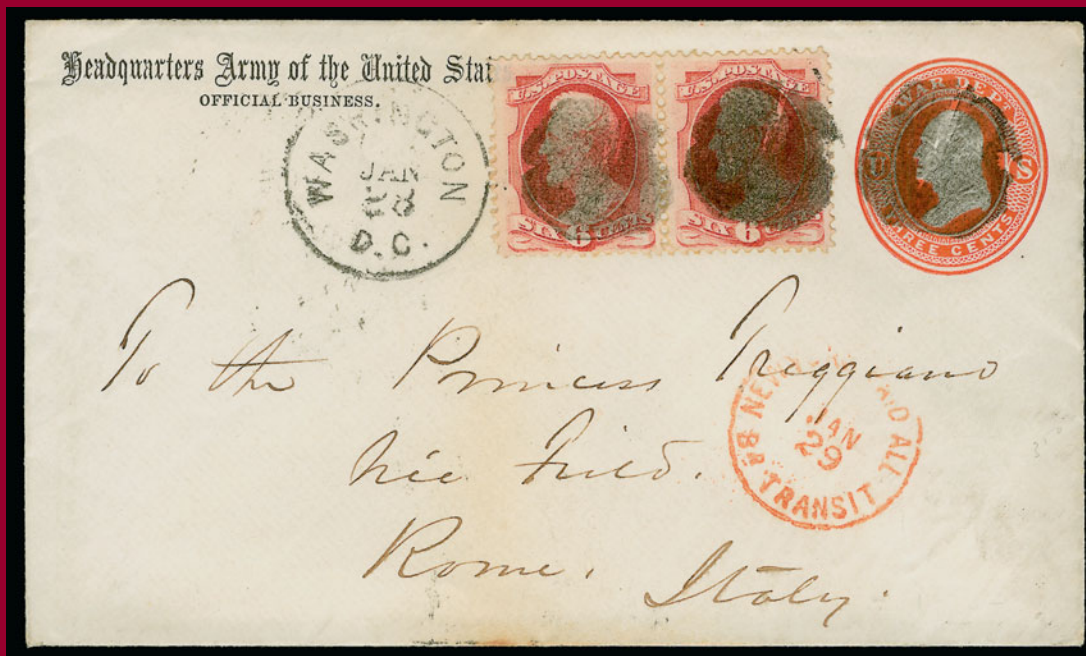 Headquarters Army of the United Stat
OFFICIAL BUSINESS.
WASHINGTON
JAN
28
D.C.
U.S. POSTAGE
SIX 6 CENTS
U.S. POSTAGE
SIX 6 CENTS
WAR DEPT.
U S
THREE CENTS
To the Princess Treggiano
née Field.
Rome.
Italy.
NEW PAID ALL
JAN
29
BR. TRANSIT